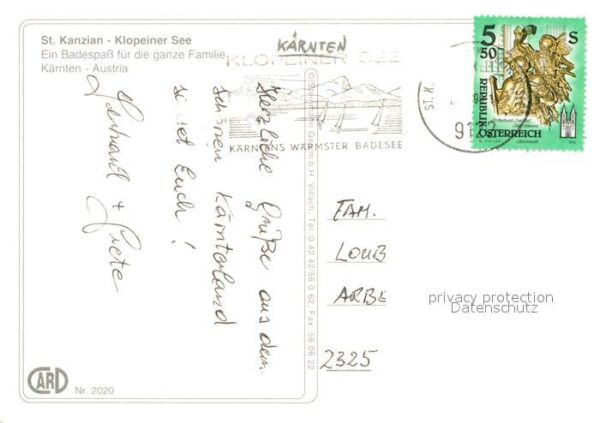 St. Kanzian - Klopeiner See
Ein Badespaß für die ganze Familie
Kärnten - Austria
KÄRNTEN
KLOPEINER SEE
KÄRNTENS WÄRMSTER BADESEE
ST. K
5 S
50
REPUBLIK
ÖSTERREICH
Herzliche Grüße aus dem
schönen Kärntnerland
sendet Euch!
+ Grete
FAM.
LOUB
ARBE
2325
privacy protection
Datenschutz
CARD
Nr. 2020
Ges.m.b.H. Villach, Tel. 0 42 42/56 0 62, Fax 56 06 22